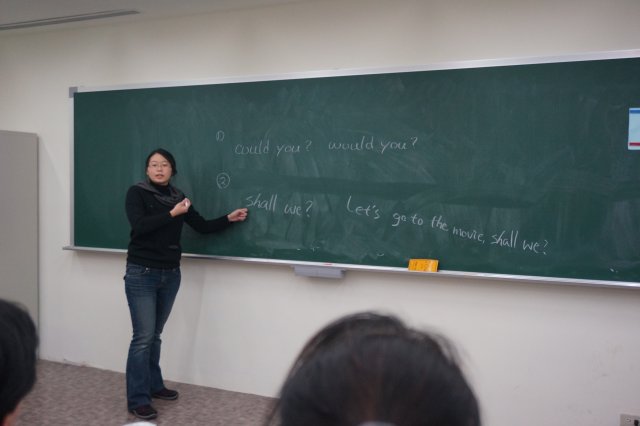 ① could you? would you?
② shall we? Let's go to the movie, shall we?